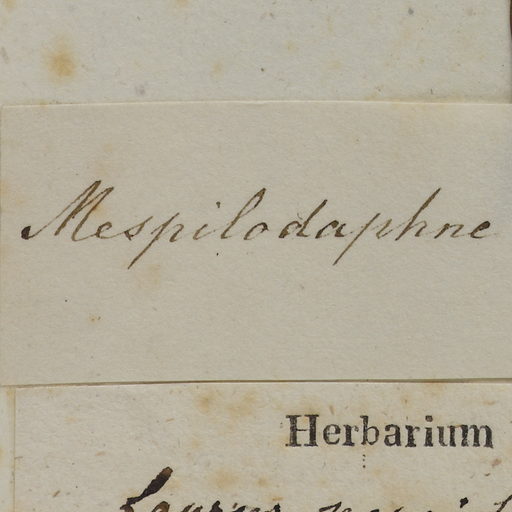 Mespilodaphne
Herbarium
Laurus